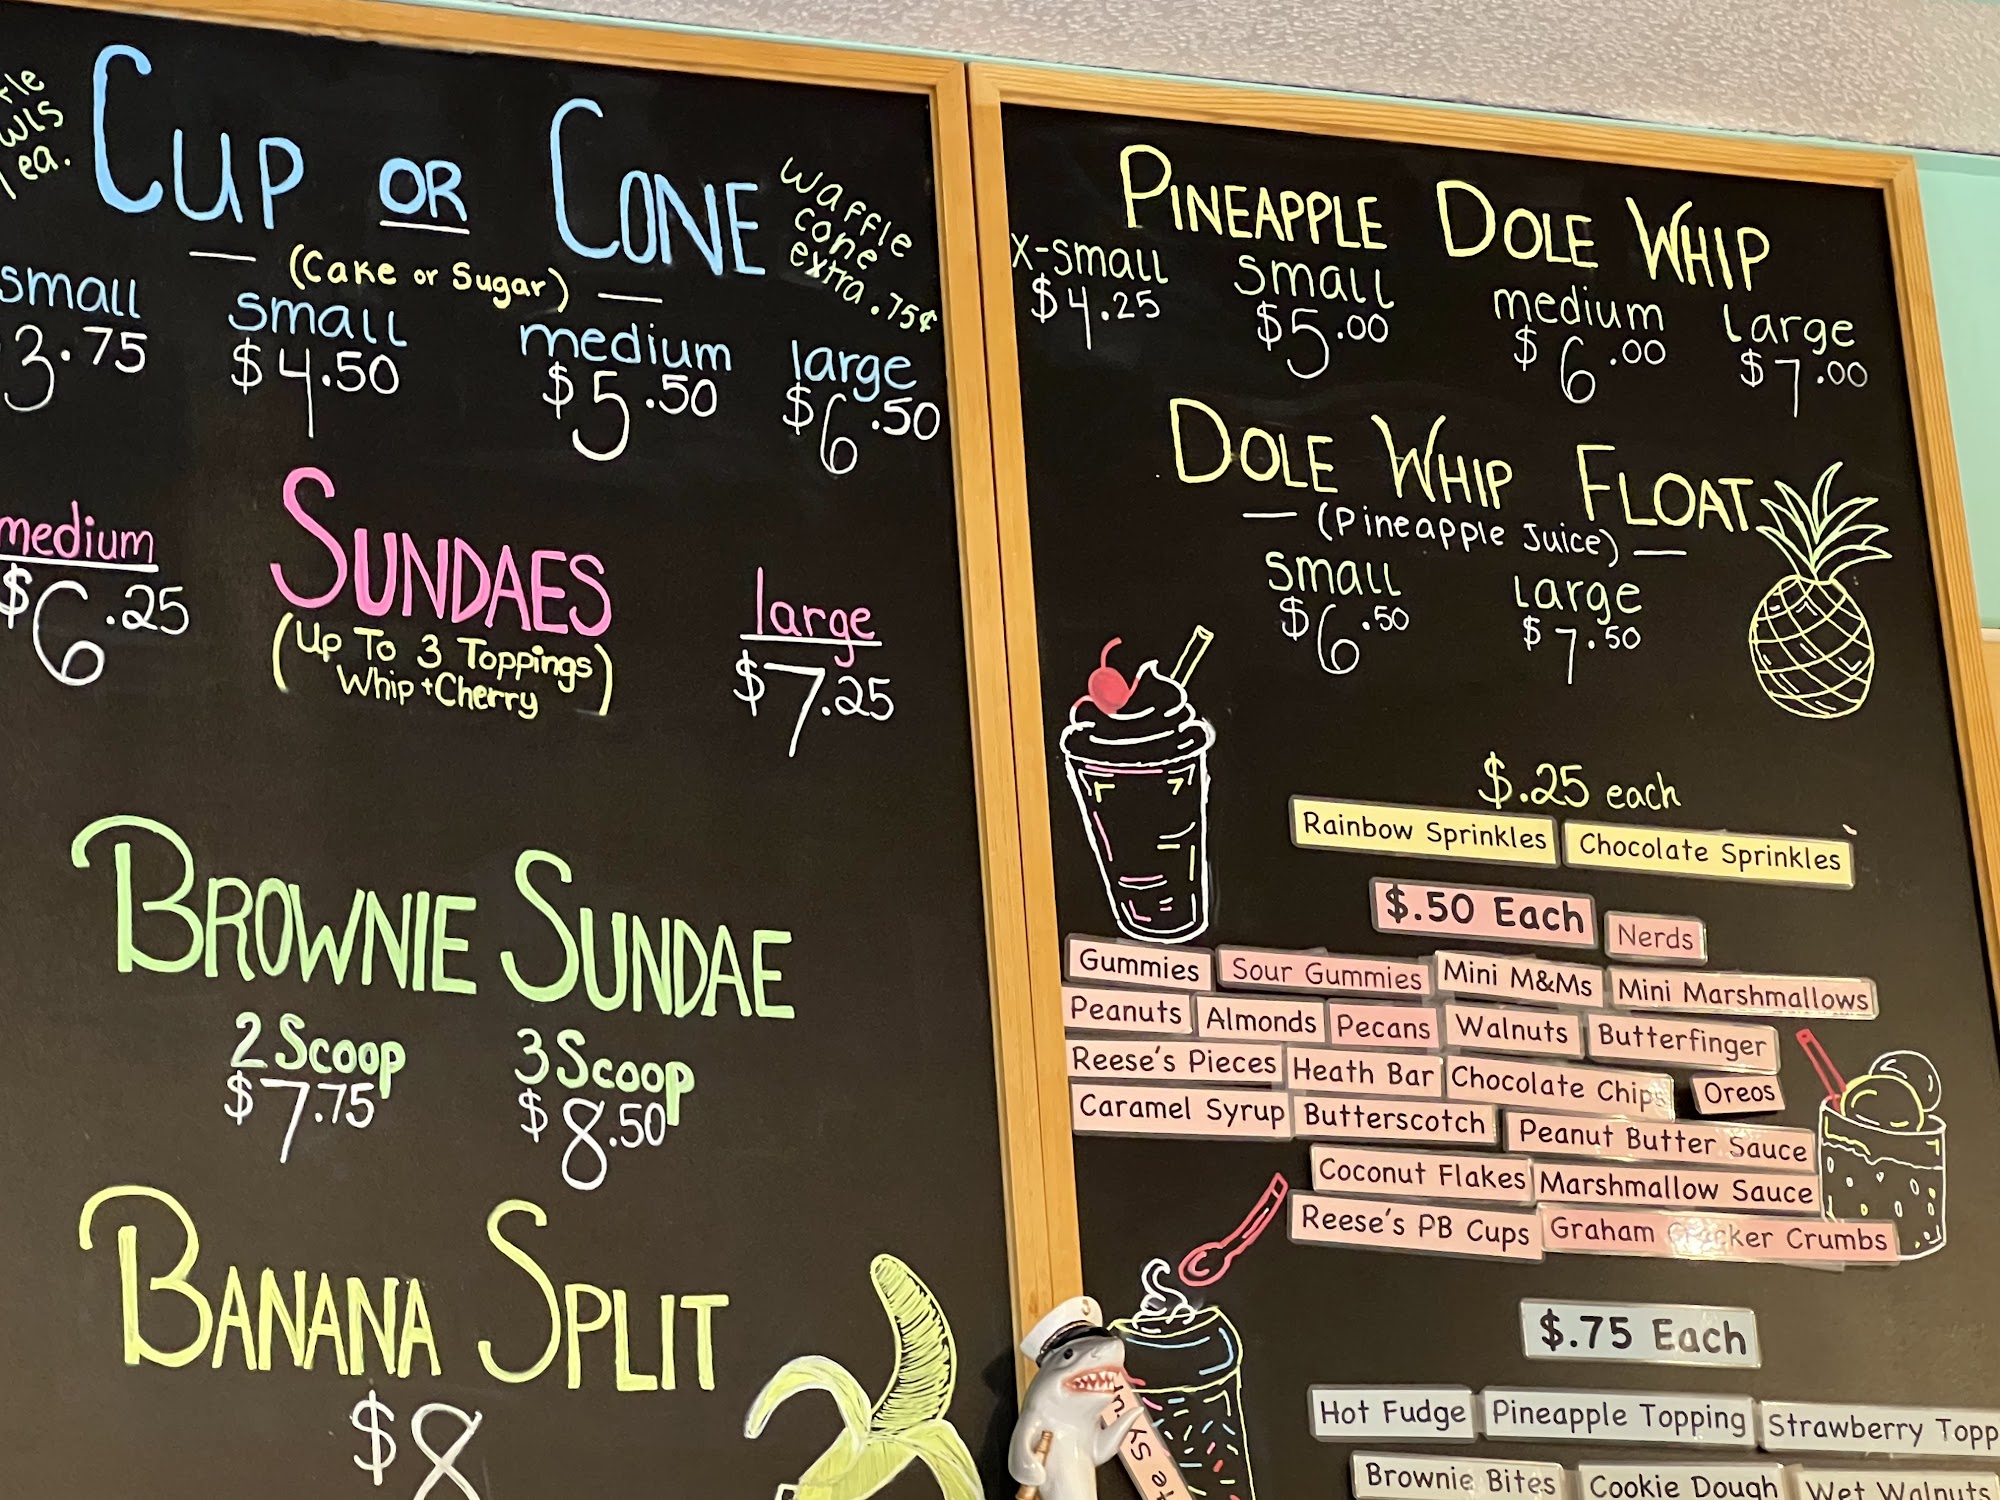 ea.
CUP OR CONE
(Cake or Sugar)
waffle
cone
extra .75¢
small small medium large
3.75 $4.50 $5.50 $6.50
SUNDAES
(Up To 3 Toppings
Whip + Cherry)
medium large
$6.25 $7.25
BROWNIE SUNDAE
2 Scoop 3 Scoop
$7.75 $8.50
BANANA SPLIT
$8
PINEAPPLE DOLE WHIP
x-small small medium large
$4.25 $5.00 $6.00 $7.00
DOLE WHIP FLOAT
(Pineapple Juice)
small large
$6.50 $7.50
$.25 each
Rainbow Sprinkles Chocolate Sprinkles
$.50 Each Nerds
Gummies Sour Gummies Mini M&Ms Mini Marshmallows
Peanuts Almonds Pecans Walnuts Butterfinger
Reese's Pieces Heath Bar Chocolate Chips Oreos
Caramel Syrup Butterscotch Peanut Butter Sauce
Coconut Flakes Marshmallow Sauce
Reese's PB Cups Graham Cracker Crumbs
$.75 Each
Hot Fudge Pineapple Topping Strawberry Topp
Brownie Bites Cookie Dough Wet Walnuts